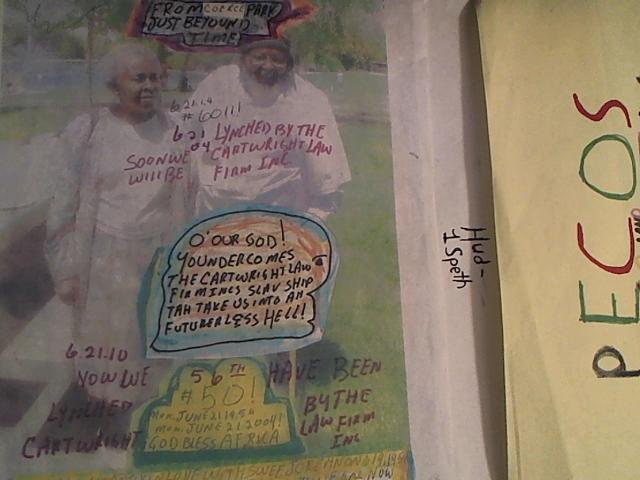 FROM COERCE PARK
JUST BEYOUND
TIME
6.21.14
#60!!!
6.21 LYNCHED BY THE
SOON WE 04 CARTWRIGHT LAW
WILL BE FIRM INC
O'OUR GOD!
YOUNDER COMES
THE CARTWRIGHT LAW
FIRM INCS SLAV SHIP
TAH TAKE US INTO AH
FUTURERLESS HELL!
6.21.10
NOW WE HAVE BEEN
LYNCHED BY THE
CARTWRIGHT LAW FIRM
INC
56TH
#50!
MON. JUNE 21 1954
MON. JUNE 21 2004!
GOD BLESS AFRICA
IN LOVE WITH SWEE
NOW
Hud-
1 Speth
PECOS